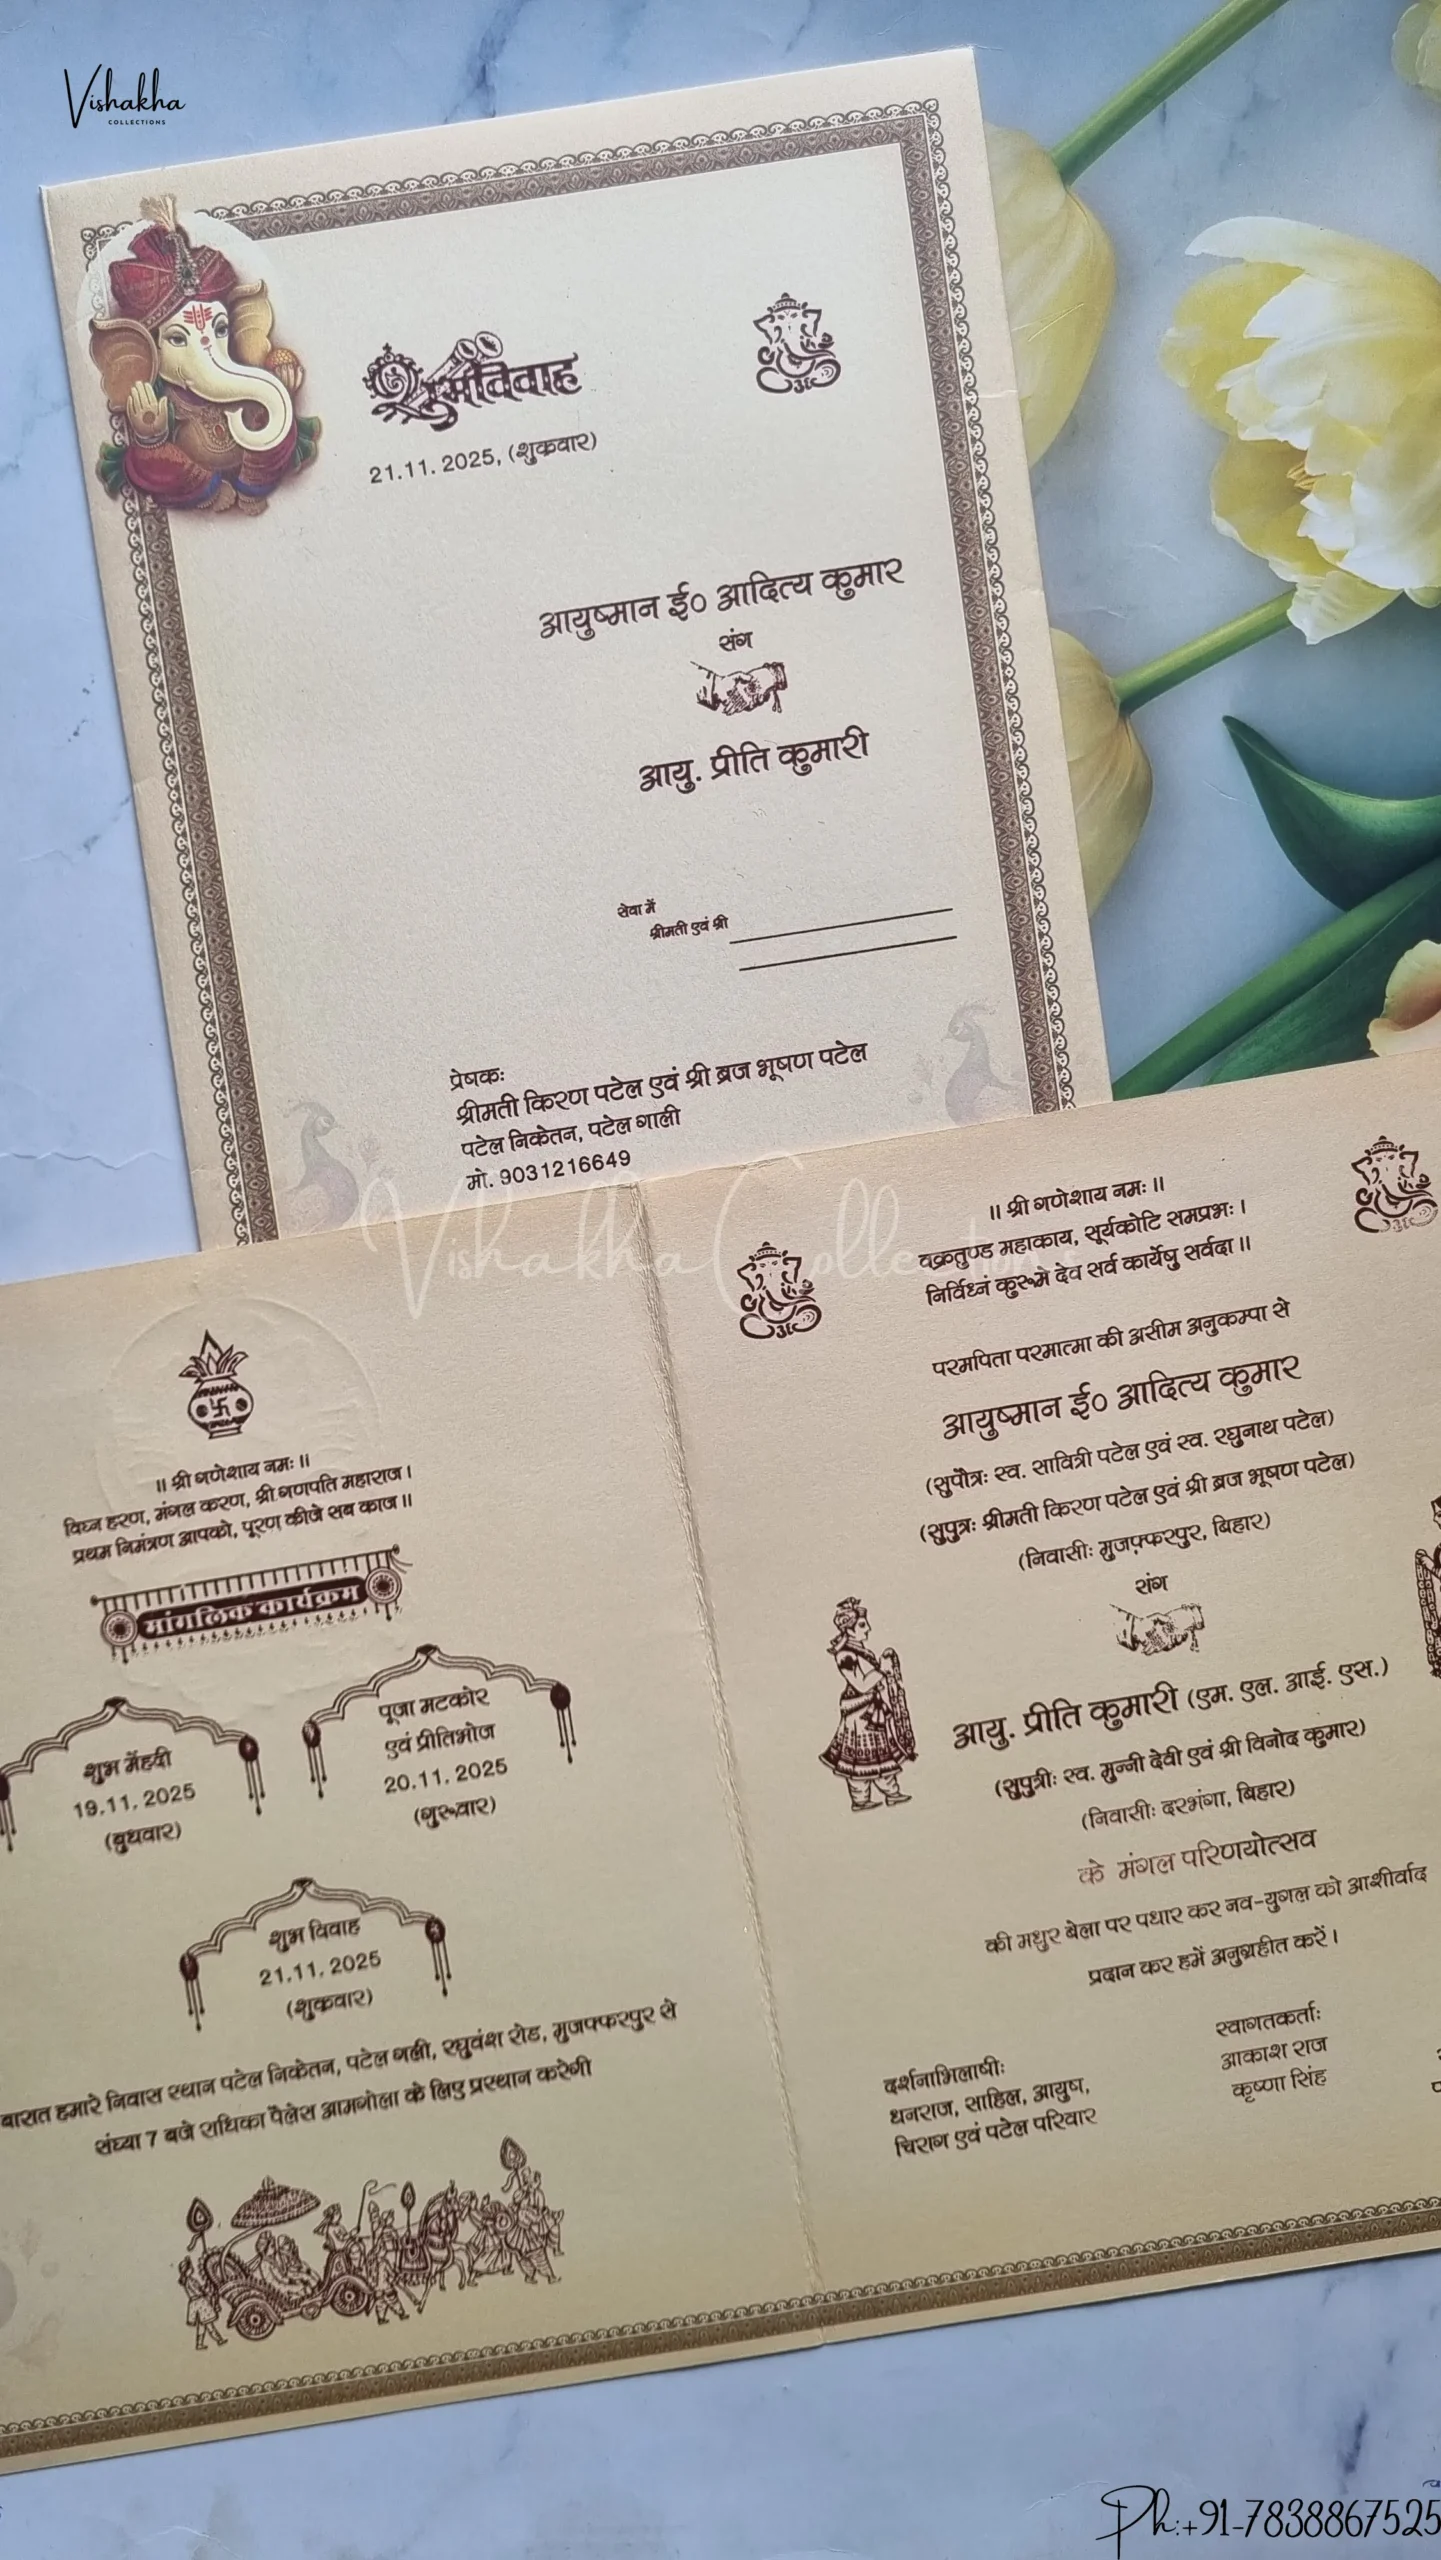 Vishakha
COLLECTIONS
शुभ विवाह
21.11. 2025, (शुक्रवार)
आयुष्मान ई० आदित्य कुमार
संग
आयु. प्रीति कुमारी
सेवा में
श्रीमती एवं श्री
प्रेषकः
श्रीमती किरण पटेल एवं श्री ब्रज भूषण पटेल
पटेल निकेतन, पटेल गाली
मो. 9031216649
Vishakha Collection
॥ श्री गणेशाय नमः ॥
विघ्न हरण, मंगल करण, श्री गणपति महाराज।
प्रथम निमंत्रण आपको, पूरण कीजे सब काज॥
मांगलिक कार्यक्रम
शुभ मेंहदी
19.11. 2025
(बुधवार)
पूजा मटकोर
एवं प्रीतिभोज
20.11. 2025
(गुरूवार)
शुभ विवाह
21.11. 2025
(शुक्रवार)
बारात हमारे निवास स्थान पटेल निकेतन, पटेल गली, रघुवंश रोड, मुजफ्फरपुर से
संघ्या 7 बजे राधिका पैलेस आमगोला के लिए प्रस्थान करेगी
॥ श्री गणेशाय नमः ॥
वक्रतुण्ड महाकाय, सूर्यकोटि समप्रभः।
निर्विघ्नं कुरूमे देव सर्व कार्येषु सर्वदा॥
परमपिता परमात्मा की असीम अनुकम्पा से
आयुष्मान ई० आदित्य कुमार
(सुपौत्रः स्व. सावित्री पटेल एवं स्व. रघुनाथ पटेल)
(सुपुत्रः श्रीमती किरण पटेल एवं श्री ब्रज भूषण पटेल)
(निवासीः मुजफ़्फरपुर, बिहार)
संग
आयु. प्रीति कुमारी (एम. एल. आई. एस.)
(सुपुत्रीः स्व. मुन्नी देवी एवं श्री विनोद कुमार)
(निवासीः दरभंगा, बिहार)
के मंगल परिणयोत्सव
की मधुर बेला पर पधार कर नव-युगल को आशीर्वाद
प्रदान कर हमें अनुग्रहीत करें।
दर्शनाभिलाषीः
धनराज, साहिल, आयुष,
चिराग एवं पटेल परिवार
स्वागतकर्ताः
आकाश राज
कृष्णा सिंह
Ph:+91-7838867525